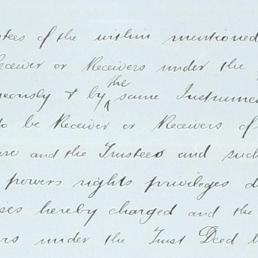 tees of the within mentioned
eceiver or Receivers under the
the
eously & by same Instrume
to be Receiver or Receivers of
are and the Trustees and such
powers rights privileges d
ses hereby charged and the
rs under the Trust Deed b